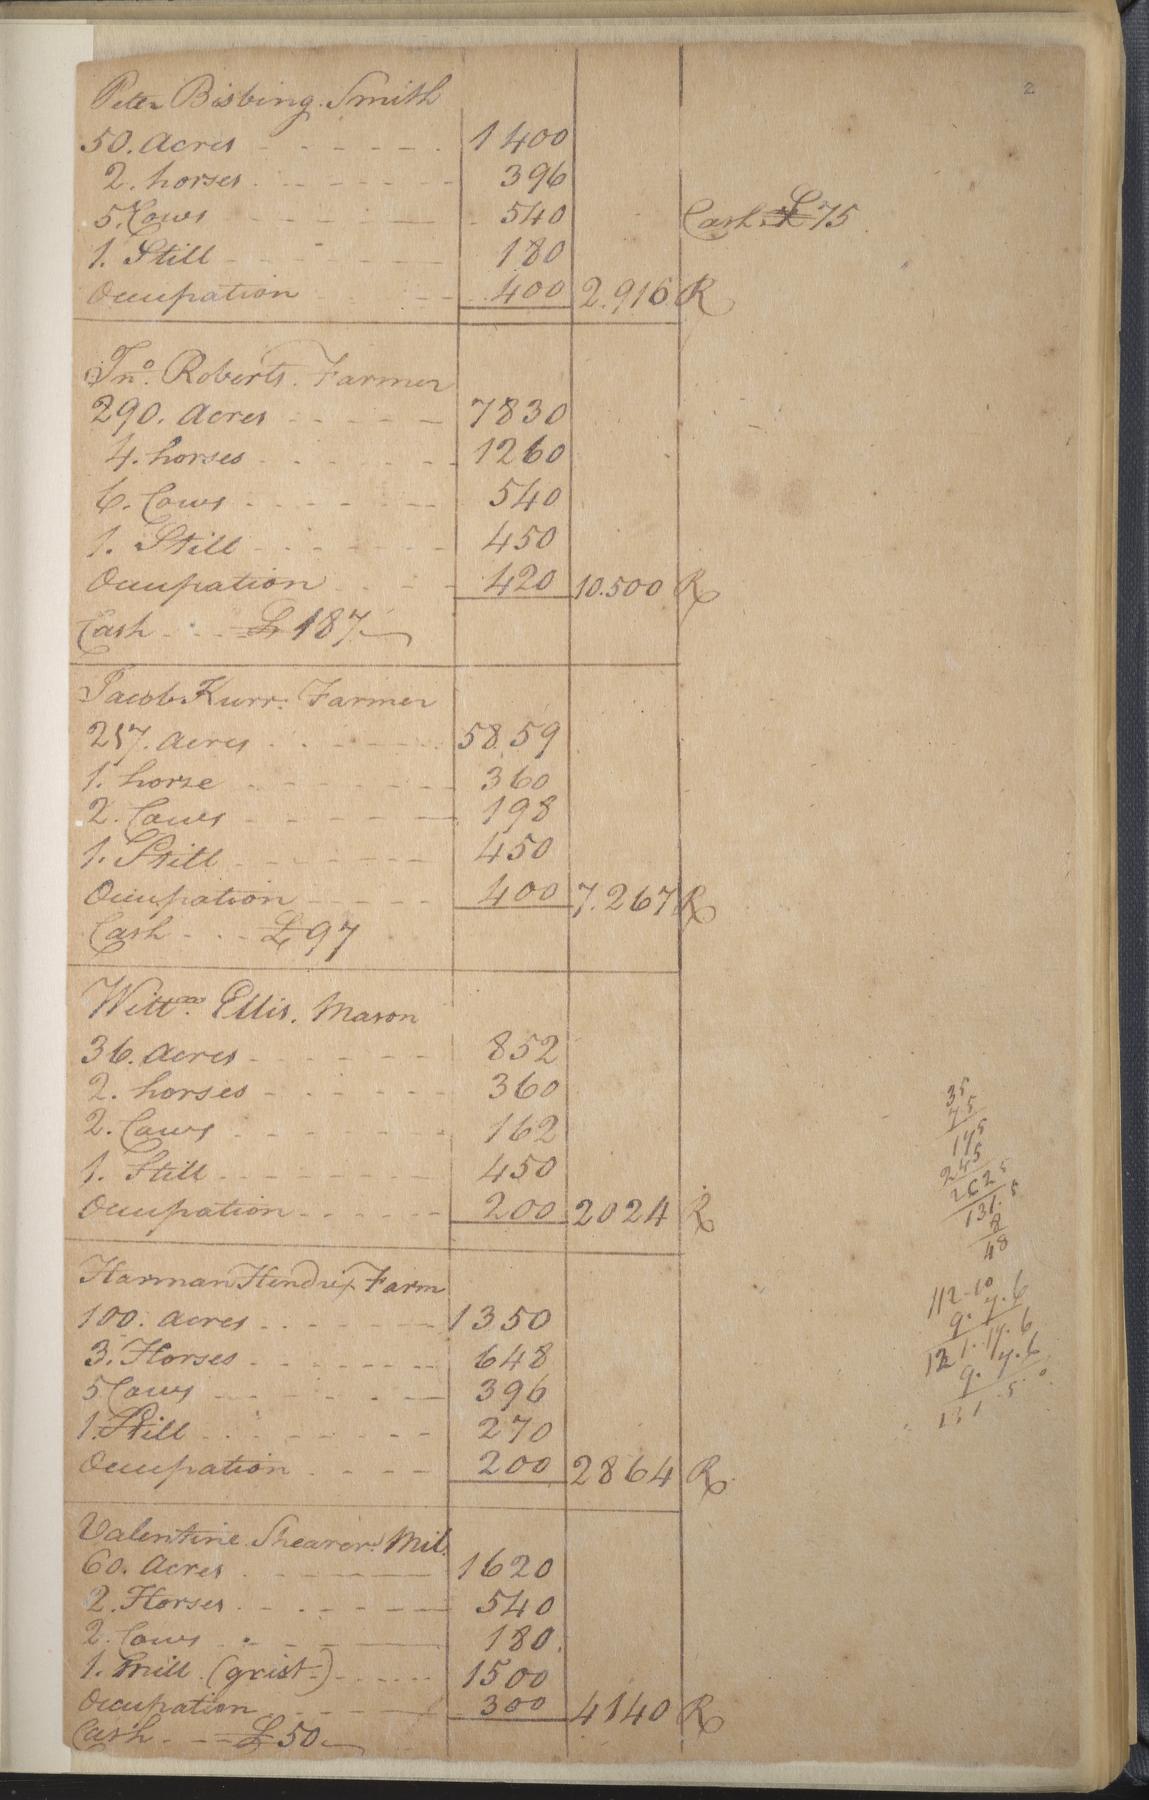 2
Peter Bisbing. Smith
50. Acres 1400
2. horses 396
5. Cows 540 Cash £75
1. Still 180
Occupation 400 2.916 R
Jno. Roberts. Farmer
290. Acres 7830
4. horses 1260
6. Cows 540
1. Still 450
Occupation 420 10.500 R
Cash £187
Jacob Kurr. Farmer
217. Acres 5859
1. horse 360
2. Cows 198
1. Still 450
Occupation 400 7.267 R
Cash £97
Willm. Ellis. Mason
36. Acres 852
2. horses 360
2. Cows 162
1. Still 450
Occupation 200 2024 R
Harman Hendrix Farm
100. Acres 1350
3. Horses 648
5 Cows 396
1. Still 270
Occupation 200 2864 R
Valentine Shearer. Mil.
60. Acres 1620
2. Horses 540
2. Cows 180.
1. Mill (grist) 1500
Occupation 300 4140 R
Cash £50
35
75
175
245
2625
131.5
8
48
112-10
9.7.6
121.17.6
9.7.6
131.5.0